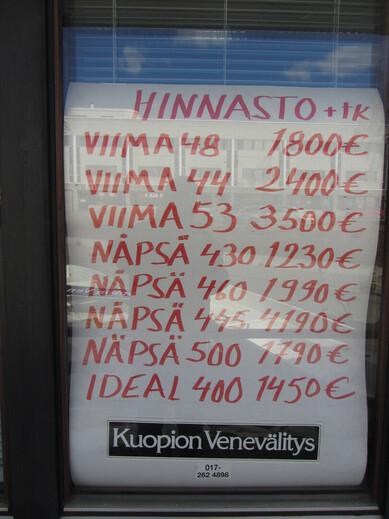 HINNASTO + tK
VIIMA 48 1800€
VIIMA 44 2400€
VIIMA 53 3500€
NÄPSÄ 430 1230€
NÄPSÄ 460 1990€
NÄPSÄ 445 4190€
NÄPSÄ 500 1790€
IDEAL 400 1450€
Kuopion Venevälitys
017-
262 4898